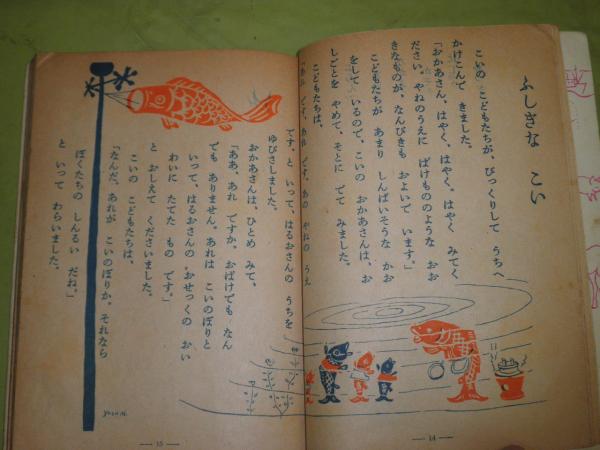 ふしぎな こい
こいの こどもたちが、びっくりして うちへ
かけこんで きました。
「おかあさん、はやく、はやく。はやく みてく
ださい。やねのうえに ばけもののような おお
きなものが、なんびきも およいで います。」
こどもたちが あまり しんぱいそうな かお
をして いるので、こいの おかあさんは、お
しごとを やめて、そとに でて みました。
こどもたちは、
「あれ です、あれ です。あの やねの うえ
です。と いって、はるおさんの うちを
ゆびさしました。
おかあさんは、ひとめ みて、
「ああ、あれ ですか。おばけでも なん
でも ありません。あれは こいのぼりと
いって、はるおさんの おせっくの おい
わいに たてた もの です。」
と おしえて くださいました。
こいの こどもたちは、
「なんだ、あれが こいのぼりか。それなら
ぼくたちの しんるい だね。」
と いって わらいました。
— 15 —
— 14 —